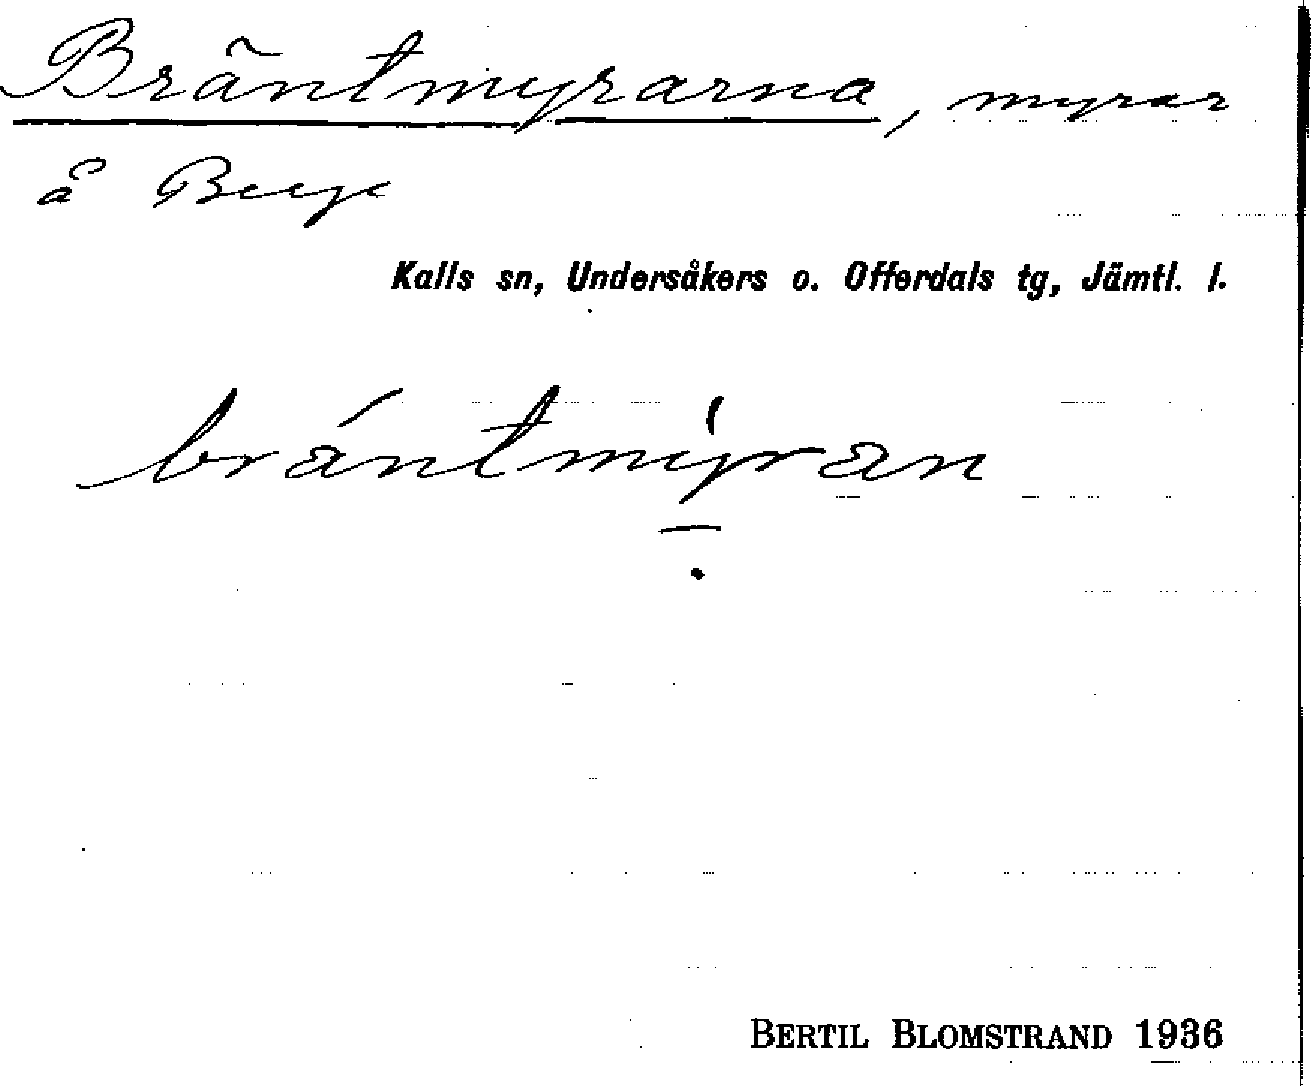 Bräntmyrarna, myrar
å Berge
Kalls sn, Undersåkers o. Offerdals tg, Jämtl. l.
brántmy̍ran
BERTIL BLOMSTRAND 1936